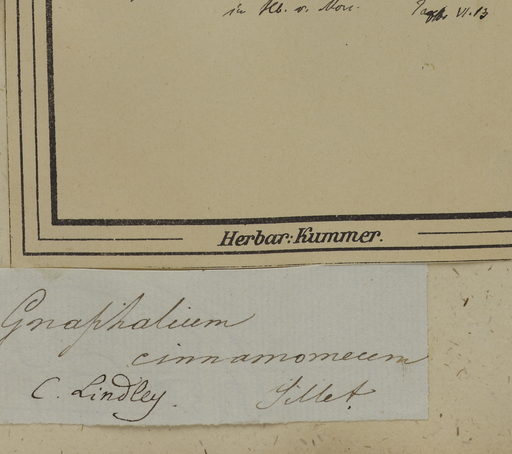 in Hb. v. Mon. VI.13
Herbar: Kummer.
Gnaphalium
cinnamomeum
C. Lindley. Sillet